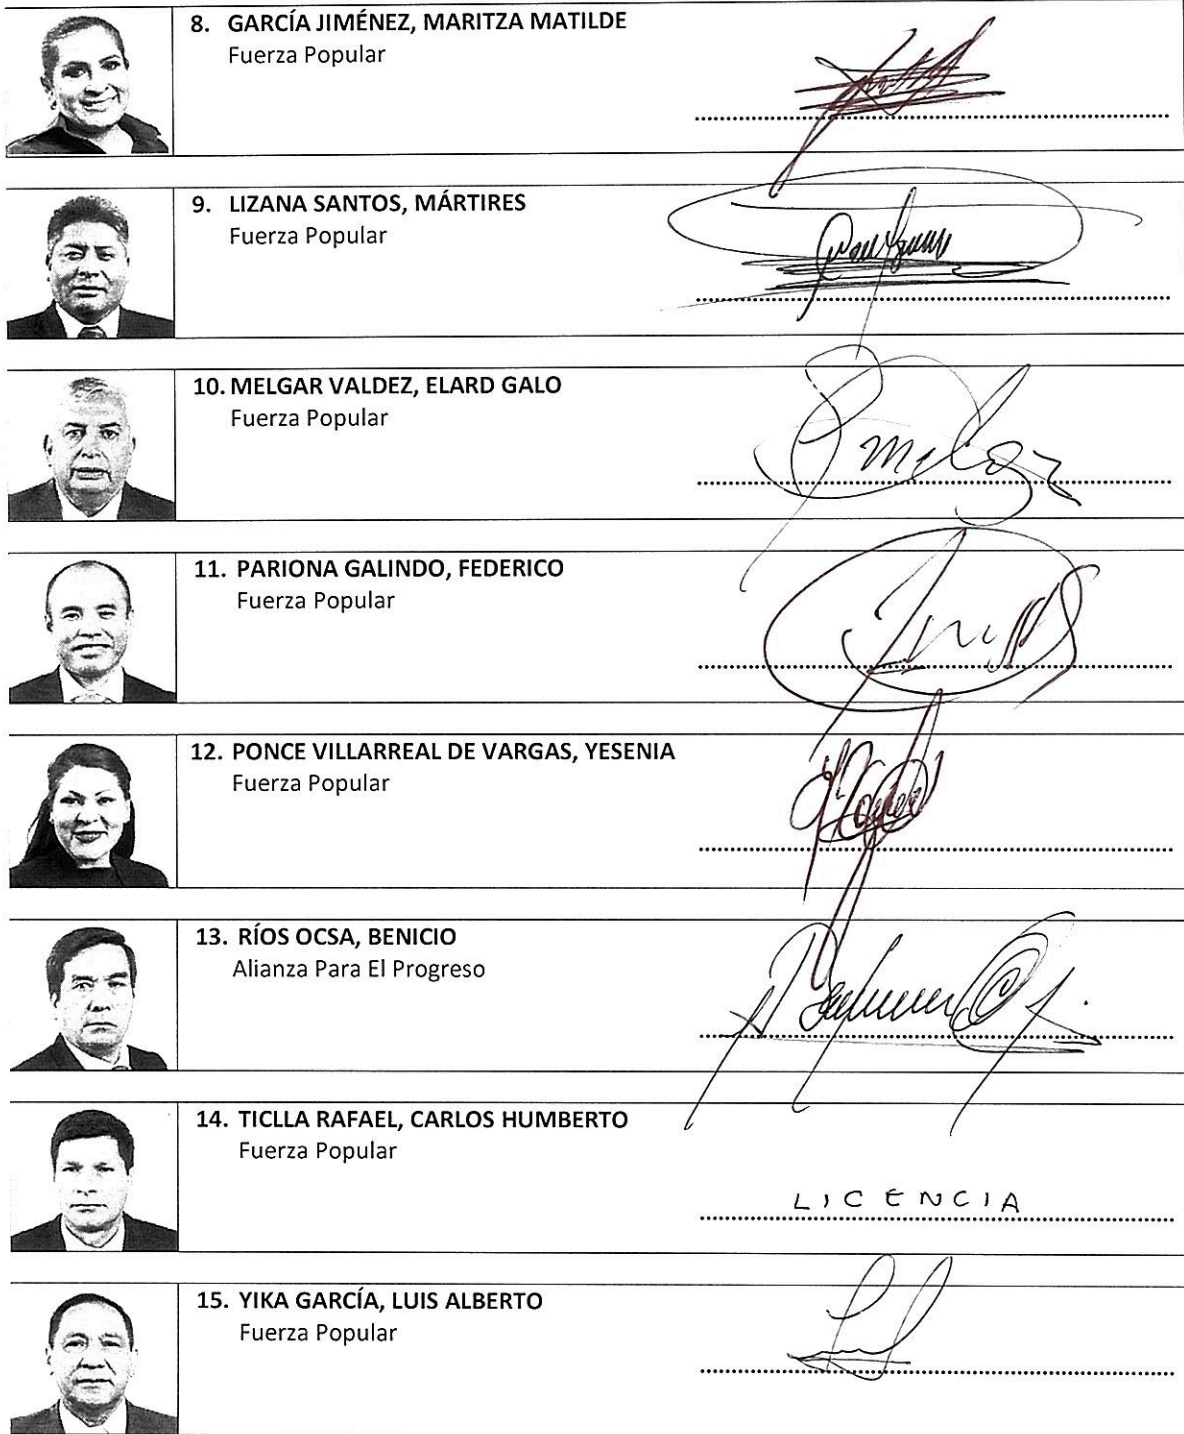 8. GARCÍA JIMÉNEZ, MARITZA MATILDE
Fuerza Popular
9. LIZANA SANTOS, MÁRTIRES
Fuerza Popular
10. MELGAR VALDEZ, ELARD GALO
Fuerza Popular
11. PARIONA GALINDO, FEDERICO
Fuerza Popular
12. PONCE VILLARREAL DE VARGAS, YESENIA
Fuerza Popular
13. RÍOS OCSA, BENICIO
Alianza Para El Progreso
14. TICLLA RAFAEL, CARLOS HUMBERTO
Fuerza Popular
LICENCIA
15. YIKA GARCÍA, LUIS ALBERTO
Fuerza Popular